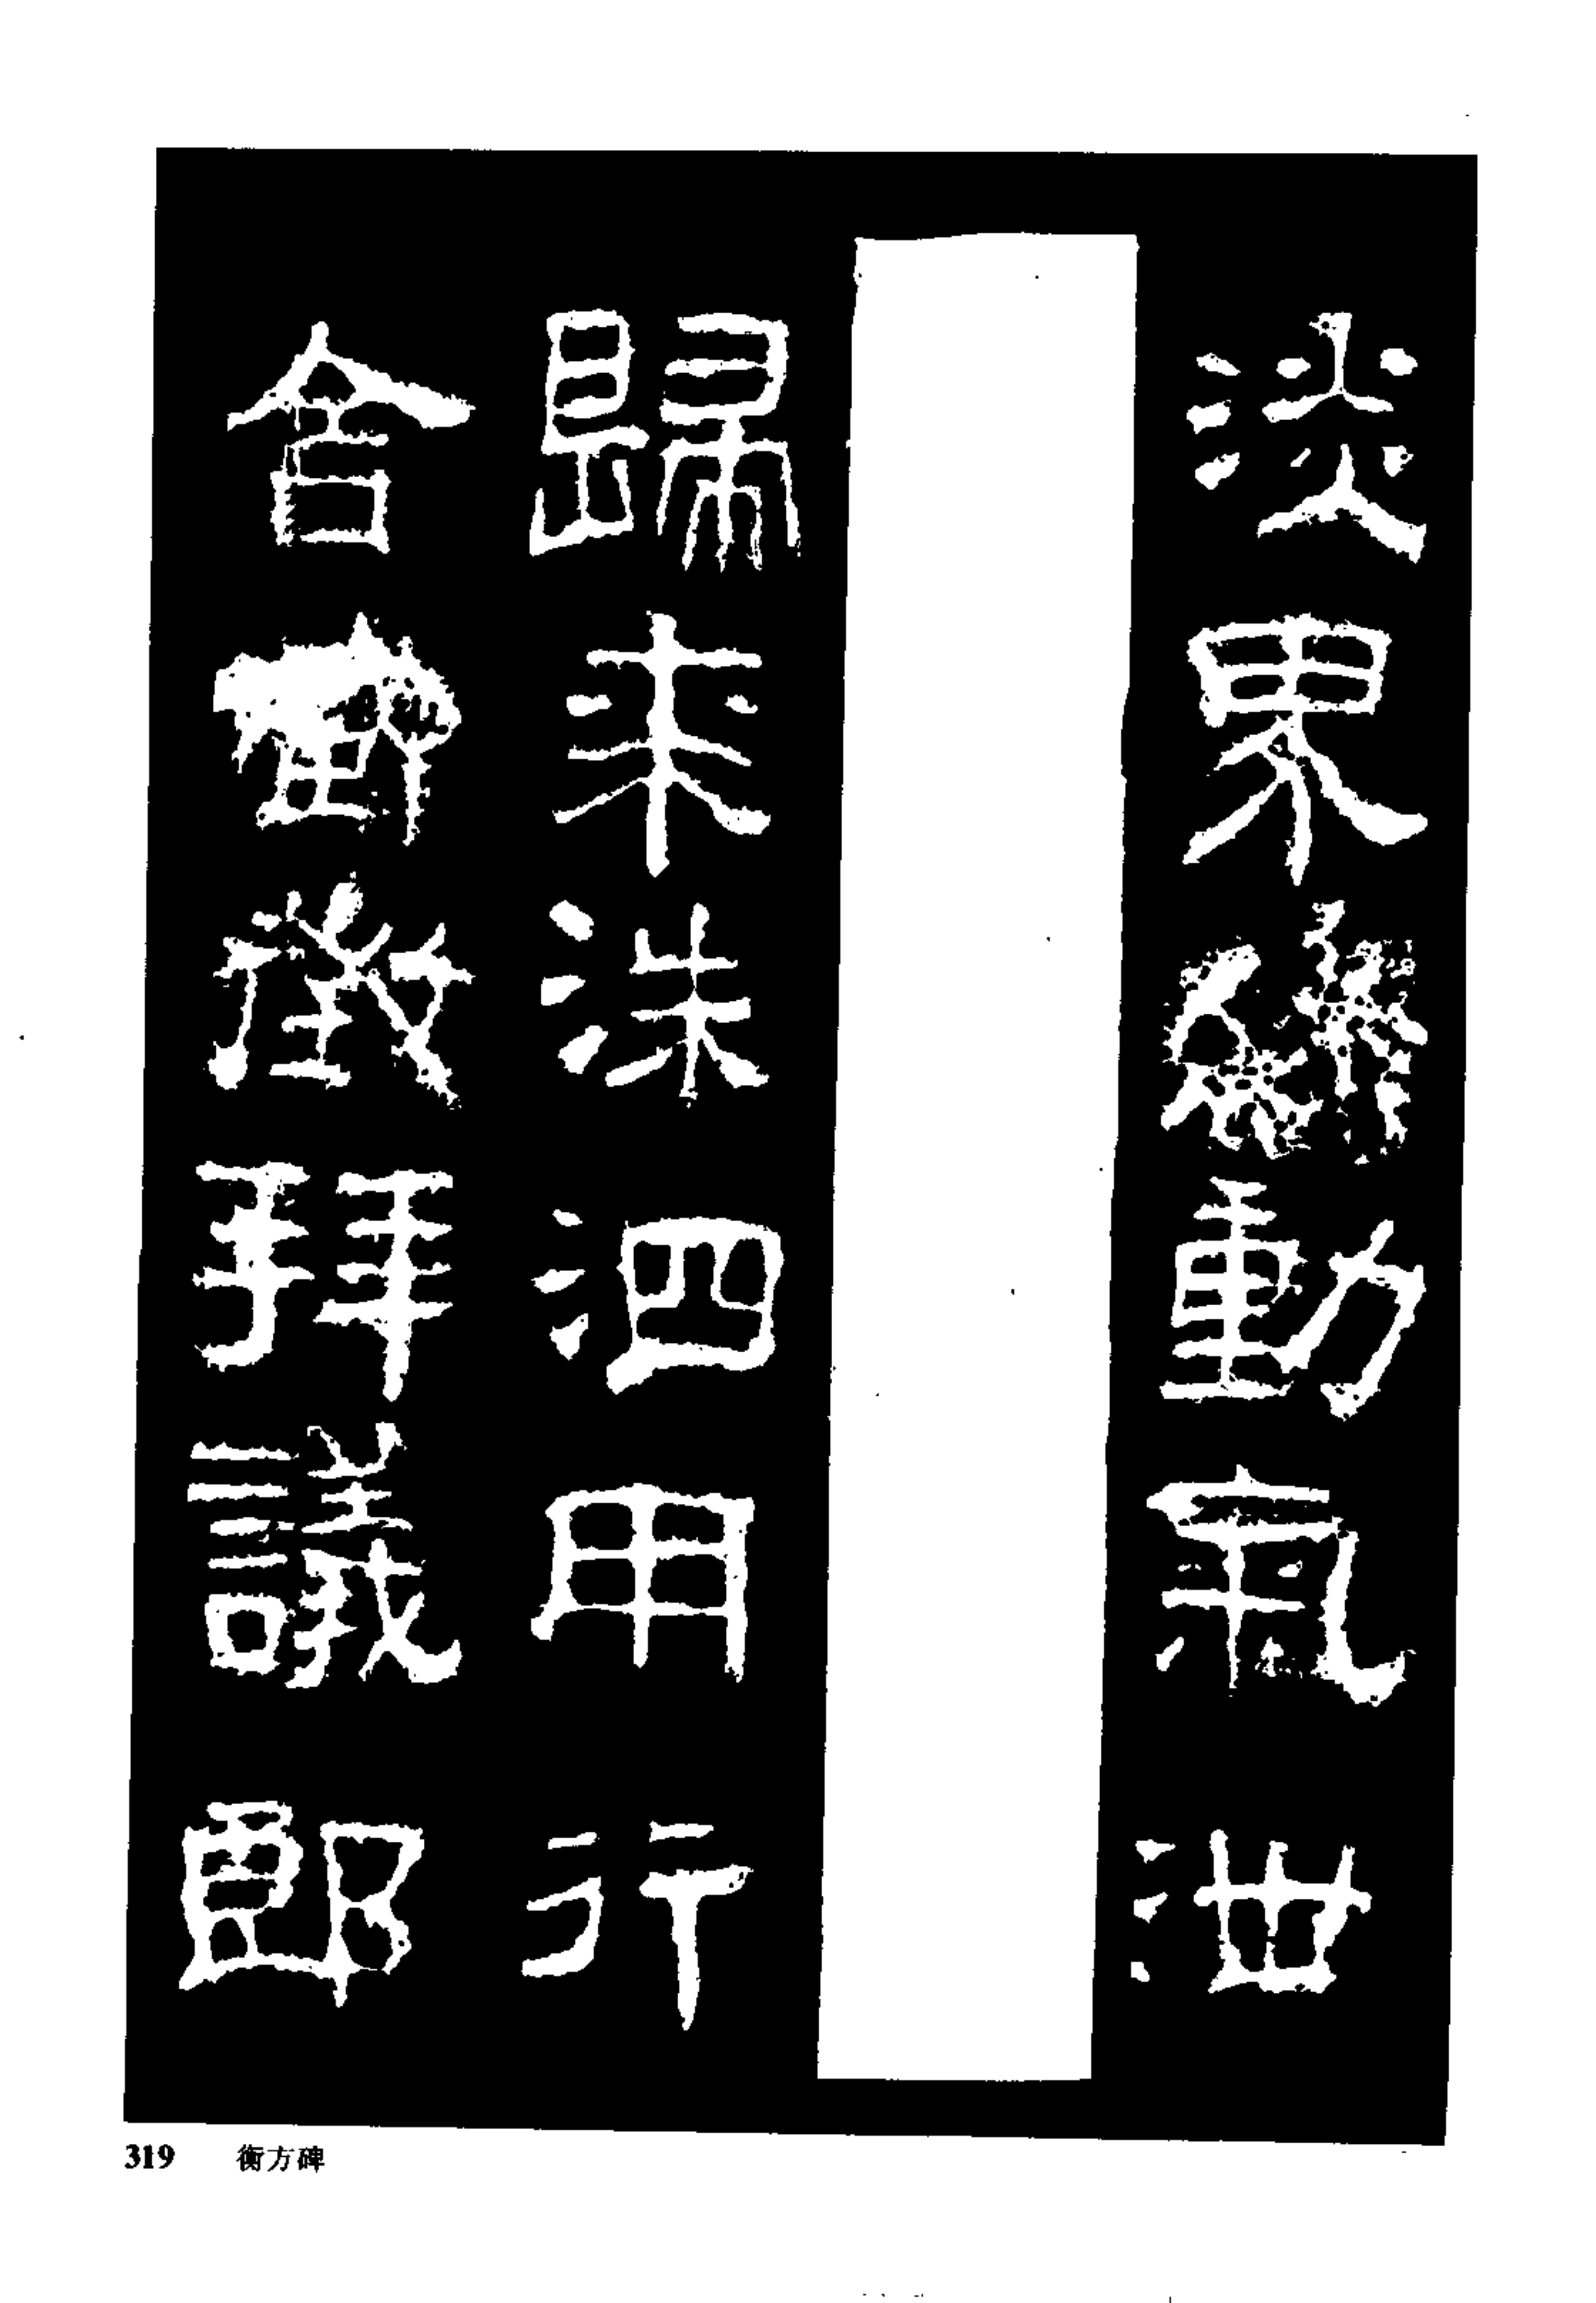 淡界繆動氣泄
歸來洙泗用行
舍臧徵拜議郎
319 衡方碑